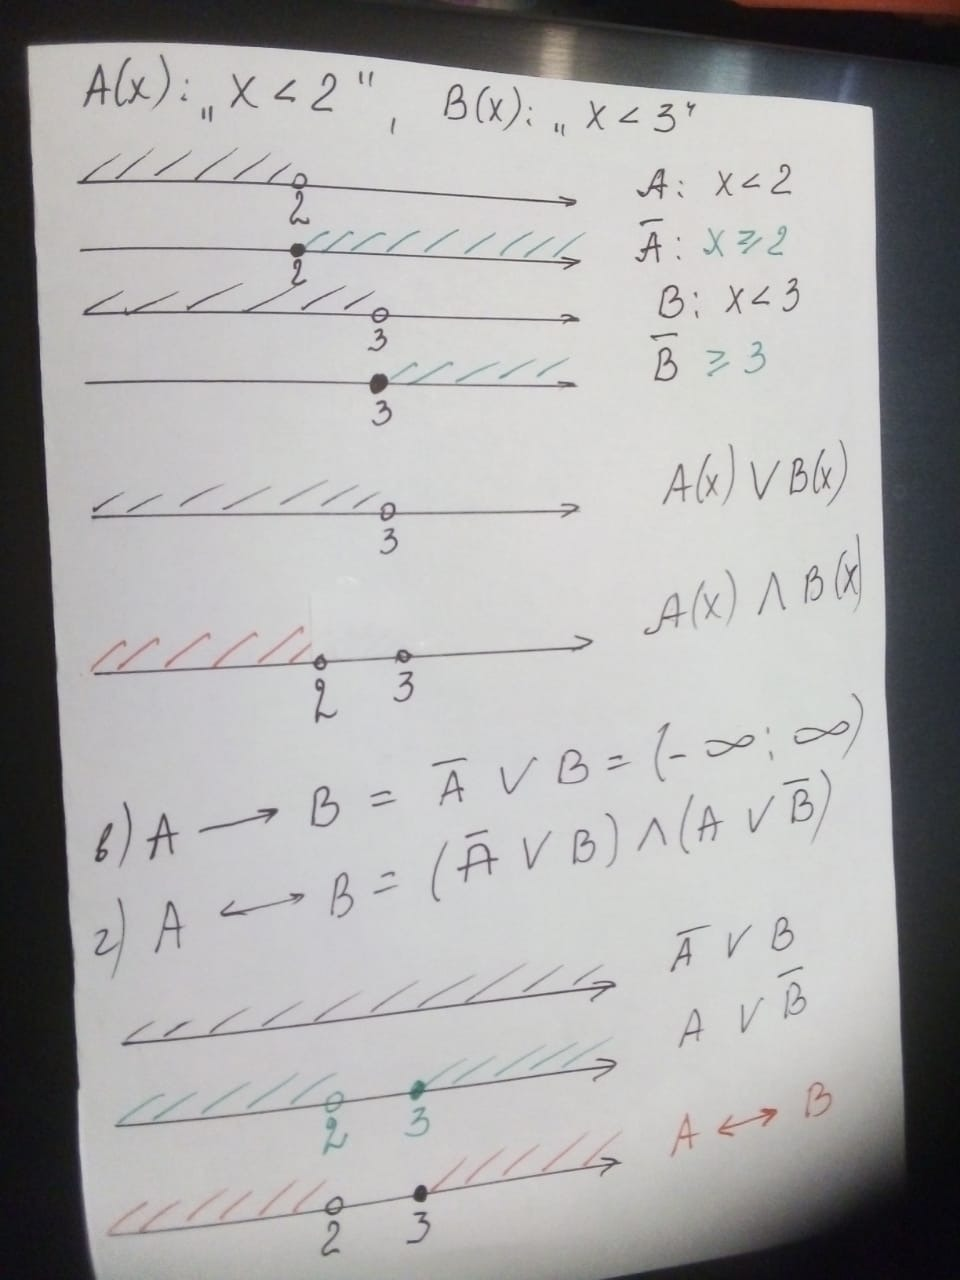 A(x): „x < 2", B(x): „x < 3"
2
A: x < 2
2
A̅: x ⩾ 2
3
B: x < 3
3
B̅ ⩾ 3
3
A(x) ∨ B(x)
2 3
A(x) ∧ B(x)
в) A → B = A̅ ∨ B = (-∞; ∞)
г) A ↔ B = (A̅ ∨ B) ∧ (A ∨ B̅)
A̅ ∨ B
2 3
A ∨ B̅
2 3
A ↔ B